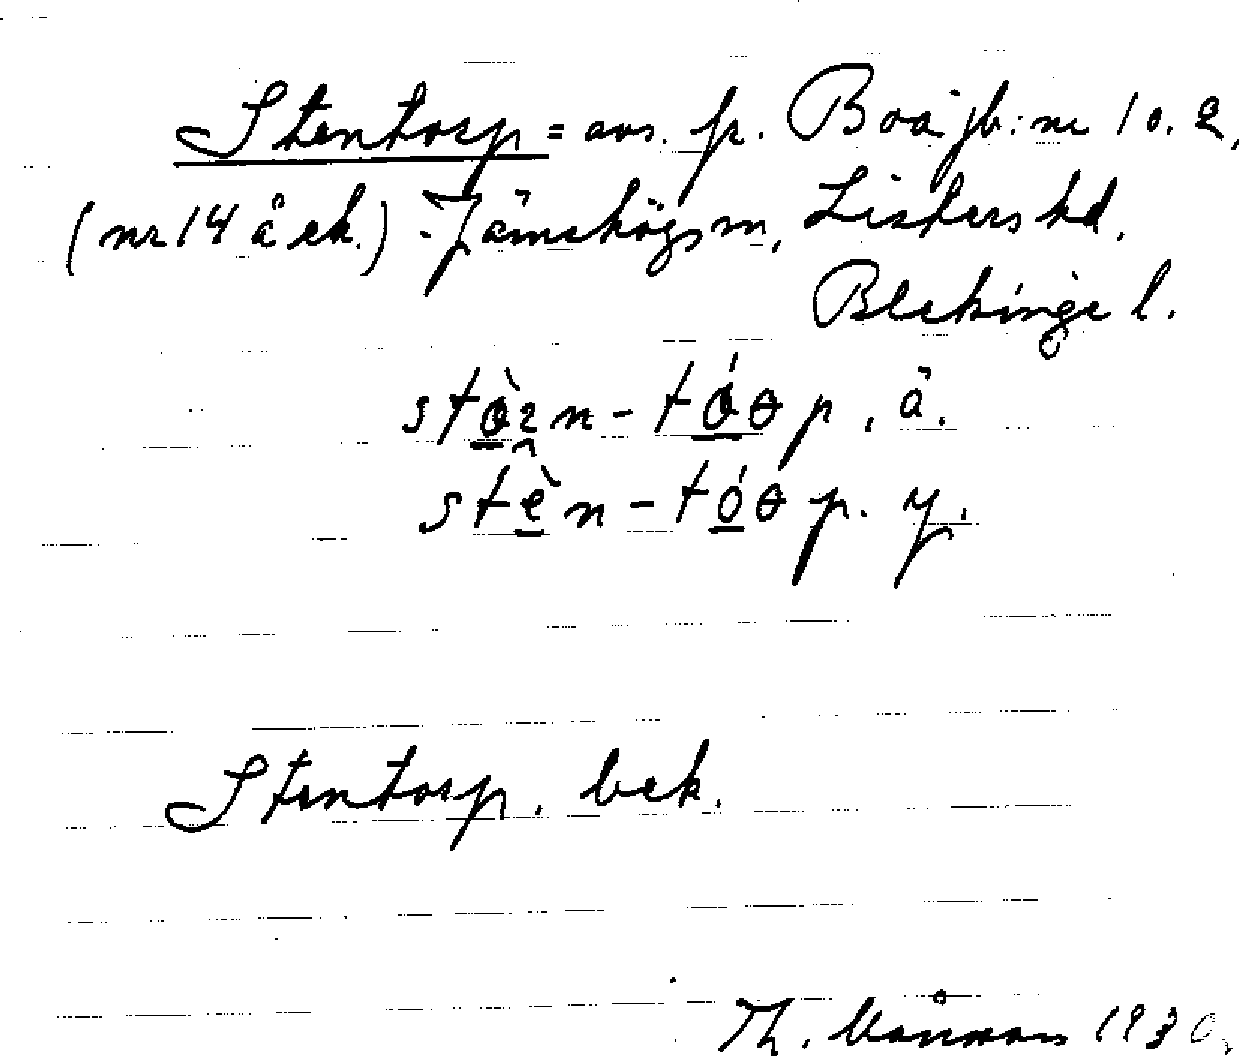 Stentorp = avs. fr. Boa jb: nr 1 o. 2,
(nr 14 å ek.) Jämshögs sn, Listers hd,
Blekinge l.
n - tóɵp, ä.
stèn - tóɵp. y.
Stentorp, bek.
Th. 1930.